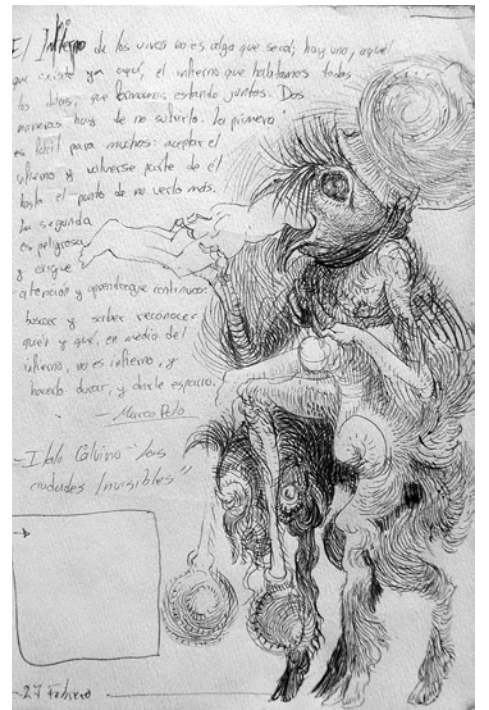 El Infierno de los vivos no es algo que será; hay uno, aquel
que existe ya aquí, el infierno que habitamos todos
los días, que formamos estando juntos. Dos
maneras hay de no sufrirlo. La primera
es fácil para muchos: aceptar el
infierno y volverse parte de él
hasta el punto de no verlo más.
La segunda
es peligrosa
y exigue
atención y aprendizaje continuos:
buscar y saber reconocer
quién y qué, en medio del
infierno, no es infierno, y
hacerlo durar, y darle espacio.
- Marco Polo
- Italo Calvino "Las
ciudades Invisibles"
-27 Febrero